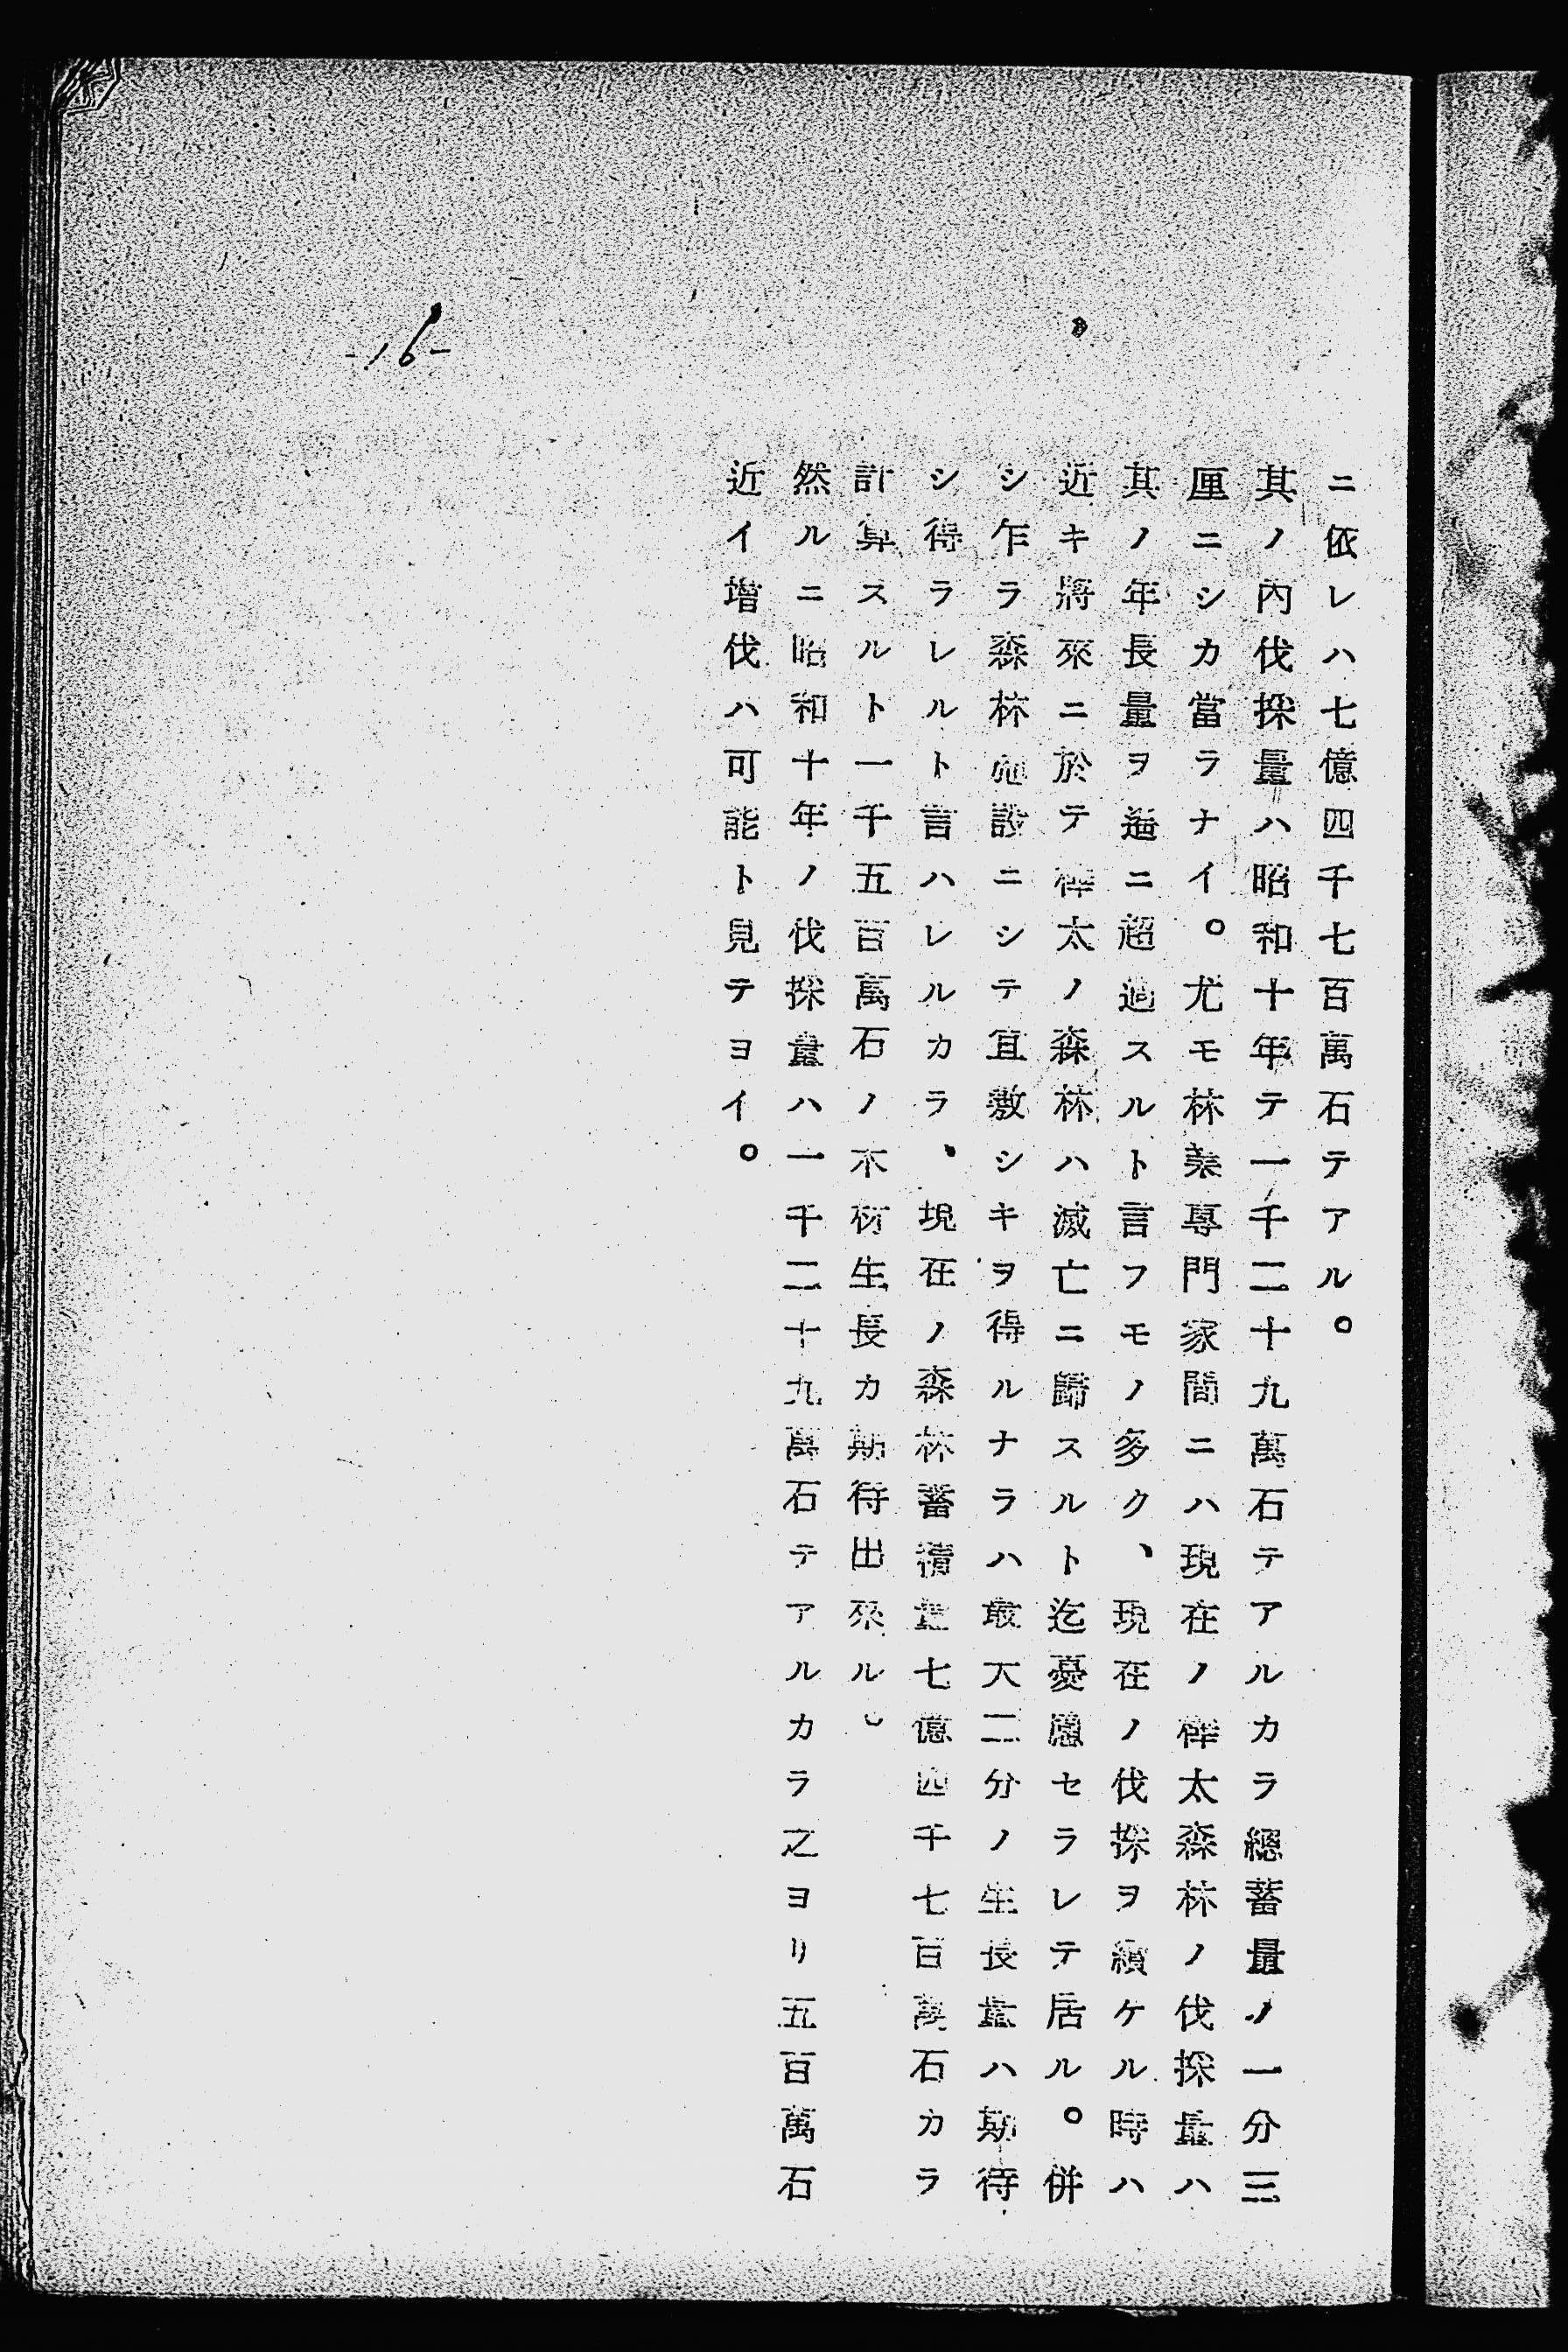 ニ依レハ七億四千七百萬石テアル。
其ノ內伐採量ハ昭和十年テ一千二十九萬石テアルカラ總蓄量ノ一分三
厘ニシカ當ラナイ。尤モ林業專門家間ニハ現在ノ樺太森林ノ伐採量ハ
其ノ年長量ヲ遙ニ超過スルト言フモノ多ク、現在ノ伐採ヲ續ケル時ハ
近キ將來ニ於テ樺太ノ森林ハ滅亡ニ歸スルト迄憂慮セラレテ居ル。併
シ乍ラ森林施設ニシテ宜敷シキヲ得ルナラハ最大二分ノ生長量ハ期待
シ得ラレルト言ハレルカラ、現在ノ森林蓄積量七億四千七百萬石カラ
計算スルト一千五百萬石ノ木材生長カ期待出來ル。
然ルニ昭和十年ノ伐採量ハ一千二十九萬石テアルカラ之ヨリ五百萬石
近イ增伐ハ可能ト見テヨイ。
-16-